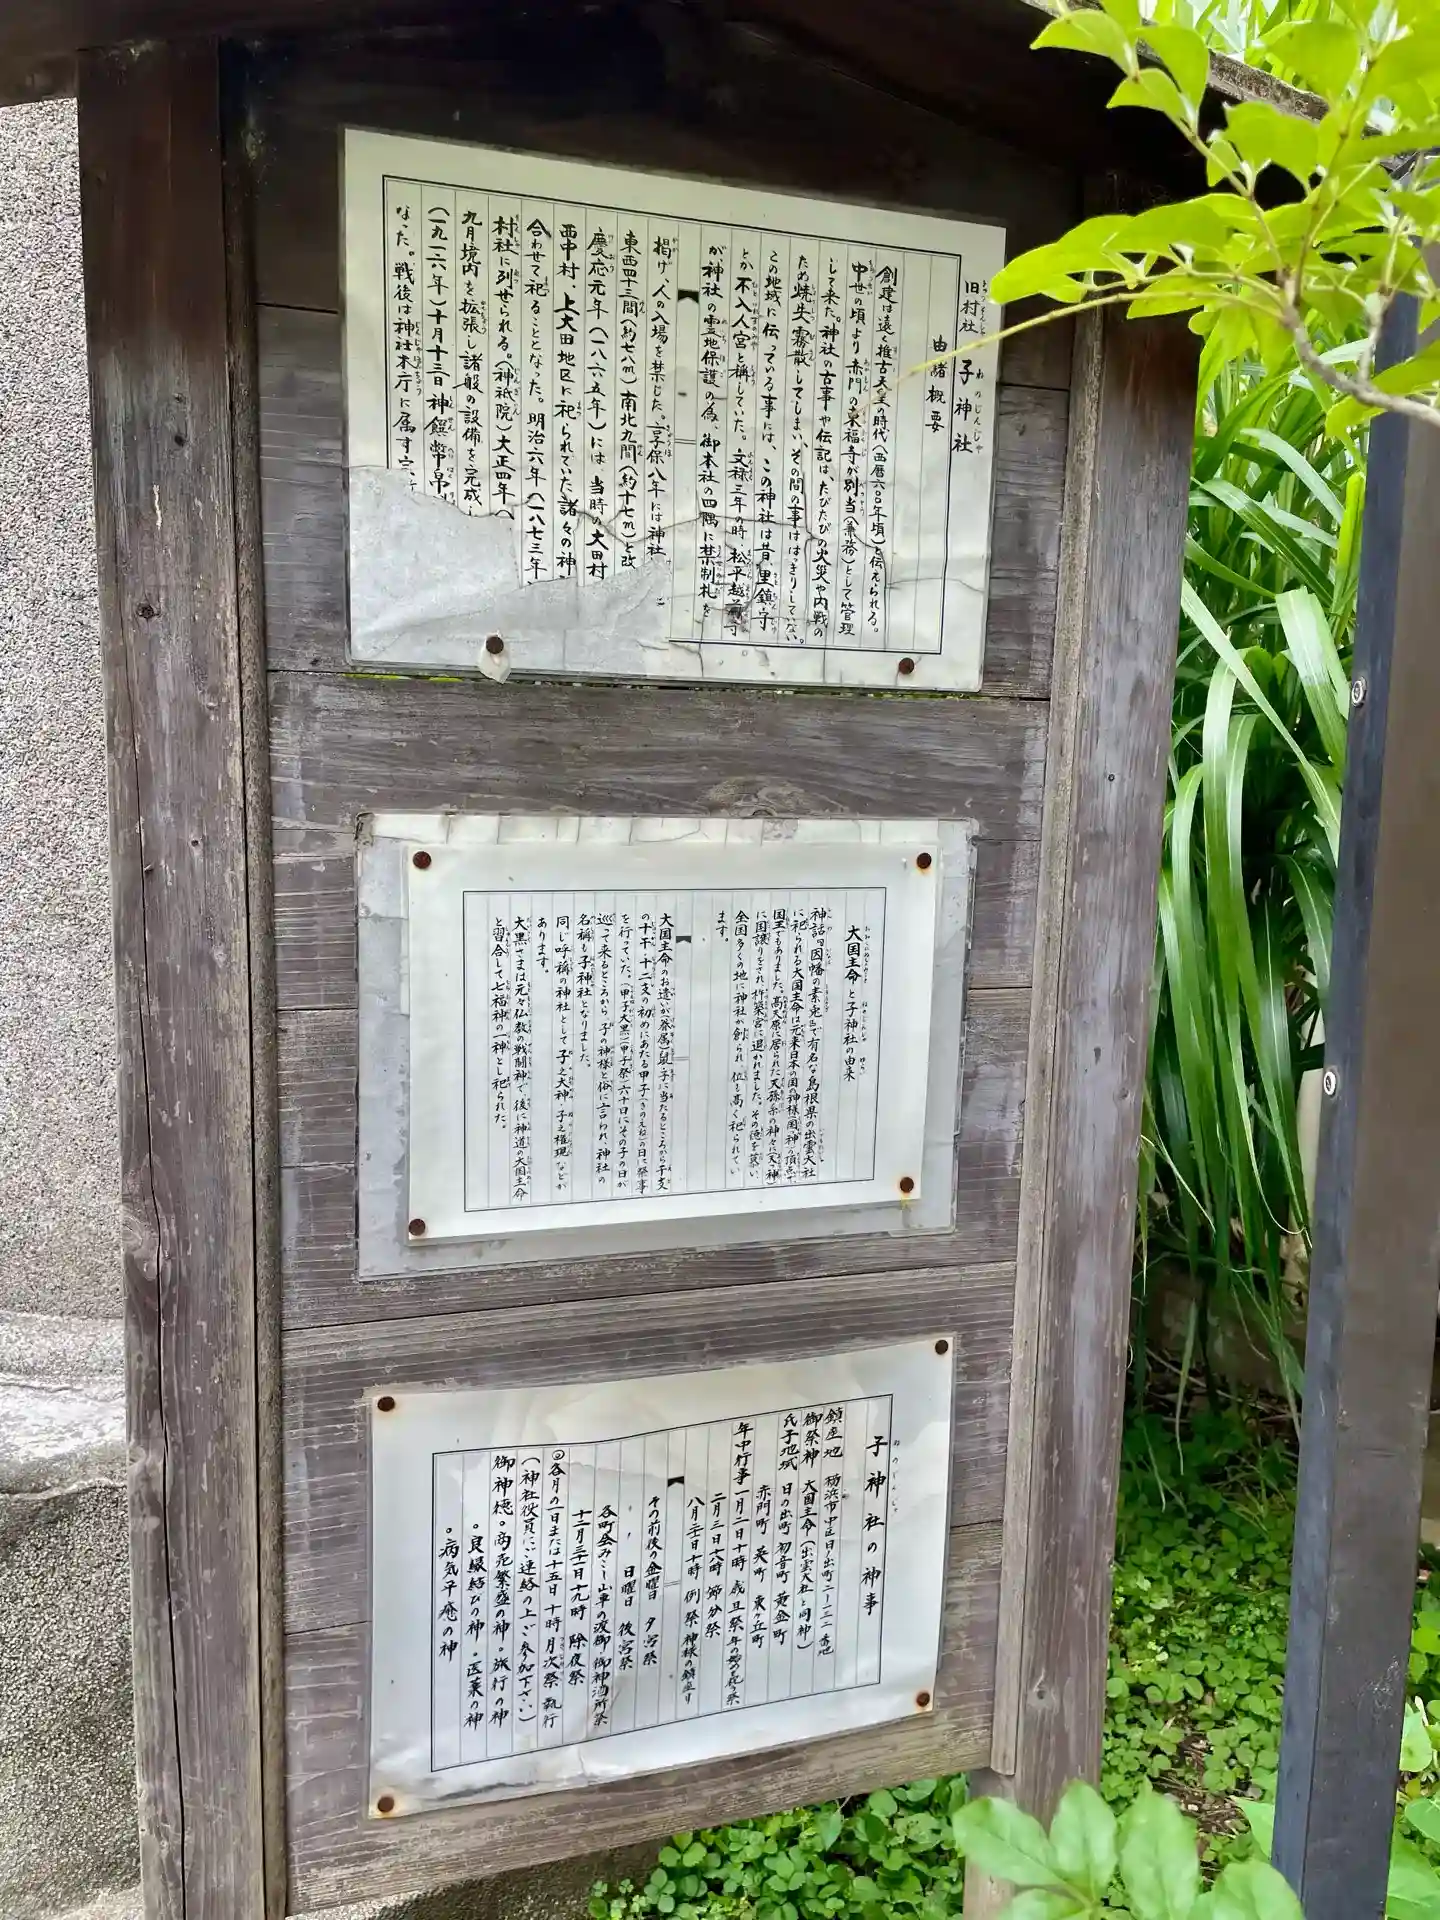 旧村社 子神社
由緒概要
創建は遠く推古天皇の時代(西暦六〇〇年頃)と伝えられる。
中世の頃より赤門の東福寺が別当(兼務)として管理
して来た。神社の古事や伝記は、たびたびの火災や内戦の
ため焼失霧散してしまい、その間の事ははっきりしていない。
この地域に伝っている事には、この神社は昔、里鎮守
とか不入人宮と称していた。文禄三年の時、松平越前守
が、神社の霊地保護の為、御本社の四隅に禁制札を
掲げ、人の入場を禁じた。享保八年には神社
東西四十三間(約七八m)南北九間(約十七m)と改
慶応元年(一八六五年)には、当時の大田村
西中村、上大田地区に祀られていた諸々の神
合わせて祀ることとなった。明治六年(一八七三年
村社に列せられる。(神祇院)大正四年(
九月境内を拡張し諸般の設備を完成し
(一九二六年)十月十三日神饌幣帛
なった。戦後は神社本庁に属す
大国主命と子神社の由来
神話「因幡の素兎」で有名な島根県の出雲大社
に祀られる大国主命は元来日本の国の神様(国神)の頂点で
国王でもありました。高天原に居られた天孫系の神々に(天神)
に国譲りをされ、杵築宮に退かれました。その徳を慕い、
全国多くの地に神社が創られ、位も高く祀られてい
ます。
大国主命のお遣いが(眷属)鼠(子)に当たるところから干支
の十干・十二支の初めにあたる甲子(きのえね)の日に祭事
を行っていた。(甲子大黒)(甲子祭)六十日にその子の日が
巡って来るところから、子の神様と俗に言われ、神社の
名称も子神社となりました。
同じ呼称の神社として子之大神、子之権現などが
あります。
大黒さまは元々仏教の戦闘神で後に神道の大国主命
と習合して七福神の一神とし祀られた。
子神社の神事
鎮座地 横浜市中区日ノ出町二ー一三二番地
御祭神 大国主命(出雲大社と同神)
氏子地域 日の出町 初音町 黄金町
赤門町 英町 東ヶ丘町
年中行事 一月二日十時 歳旦祭 年の初めの祭
二月三日十八時 節分祭
八月二十日十時 例祭 神様の鎮座り
その前後の金曜日 夕宮祭
日曜日 後宮祭
各町会みこし山車の渡御 御神酒所祭
十二月三十一日十九時 除夜祭
回各月の一日または十五日十時 月次祭 執行
(神社役員にご連絡の上ご参加下さい)
御神徳 。商売繁盛の神 。旅行の神
。良縁結びの神 。医薬の神
。病気平癒の神